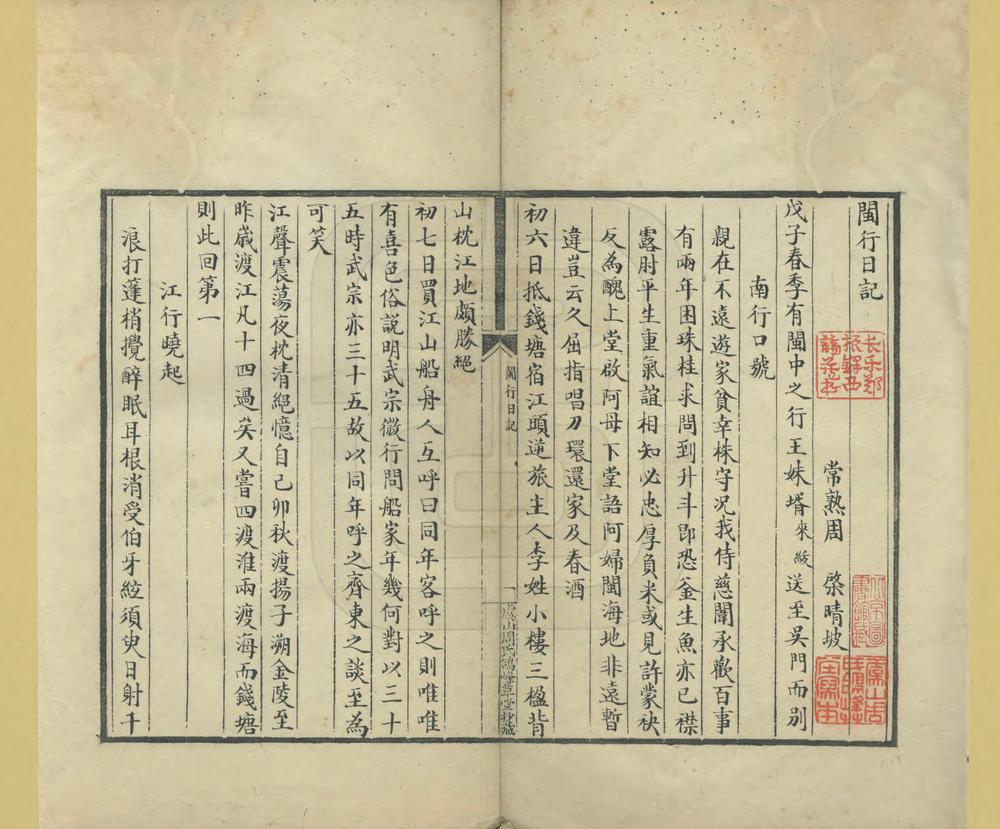 閩行日記
常熟周 棨晴坡
戊子春季有閩中之行王妹壻來綏送至吳門而別
南行口號
親在不遠遊家貧幸株守況我侍慈闈承歡百事
有兩年困珠桂求問到升斗卽恐釜生魚亦已襟
露肘平生重氣誼相知必忠厚負米或見許蒙袂
反為醜上堂啟阿母下堂語阿婦閩海地非遠暫
違豈云久屈指唱刀環還家及春酒
初六日抵錢塘宿江頭逆旅主人李姓小樓三楹背
閩行日記
一
虞山周氏鴿峰草堂抄藏
山枕江地頗勝絕
初七日買江山船舟人互呼曰同年客呼之則唯唯
有喜色俗説明武宗微行問船家年幾何對以三十
五時武宗亦三十五故以同年呼之齊東之談至為
可笑
江聲震蕩夜枕清絕憶自己卯秋渡揚子溯金陵至
昨歲渡江凡十四過矣又嘗四渡淮兩渡海而錢塘
則此回第一
江行曉起
浪打蓬梢攪醉眠耳根消受伯牙絃須臾日射千